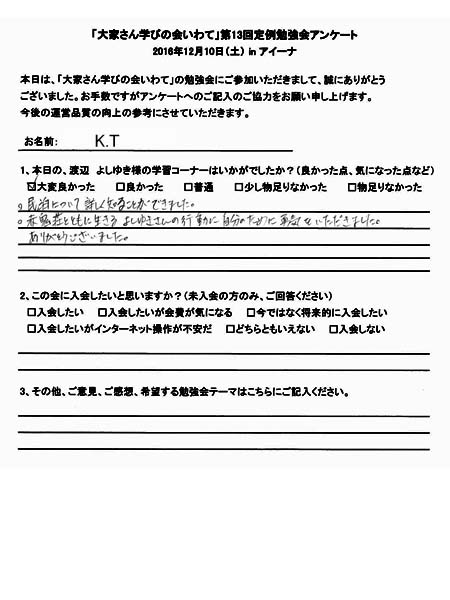 「大家さん学びの会いわて」第13回定例勉強会アンケート
2016年12月10日(土) in アイーナ
本日は、「大家さん学びの会いわて」の勉強会にご参加いただきまして、誠にありがとう
ございました。お手数ですがアンケートへのご記入のご協力をお願い申し上げます。
今後の運営品質の向上の参考にさせていただきます。
お名前: K.T
1、本日の、渡辺 よしゆき様の学習コーナーはいかがでしたか?(良かった点、気になった点など)
☑大変良かった □良かった □普通 □少し物足りなかった □物足りなかった
○民泊について詳しく知ることができました。
○赤鬼荘とともに生きるよしゆきさんの行動に自分のために勇気をいただきました。
ありがとうございました。
2、この会に入会したいと思いますか?(未入会の方のみ、ご回答ください)
□入会したい □入会したいが会費が気になる □今ではなく将来的に入会したい
□入会したいがインターネット操作が不安だ □どちらともいえない □入会しない
3、その他、ご意見、ご感想、希望する勉強会テーマはこちらにご記入ください。